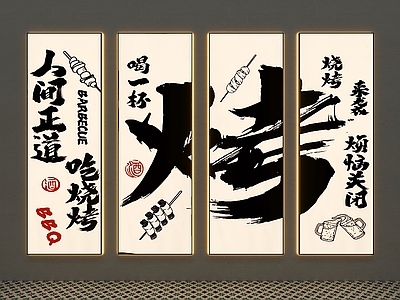 人间正道
BARBECUE
吃烧烤
酒
BBQ
喝一杯
酒
烤
烧烤
烦恼关闭